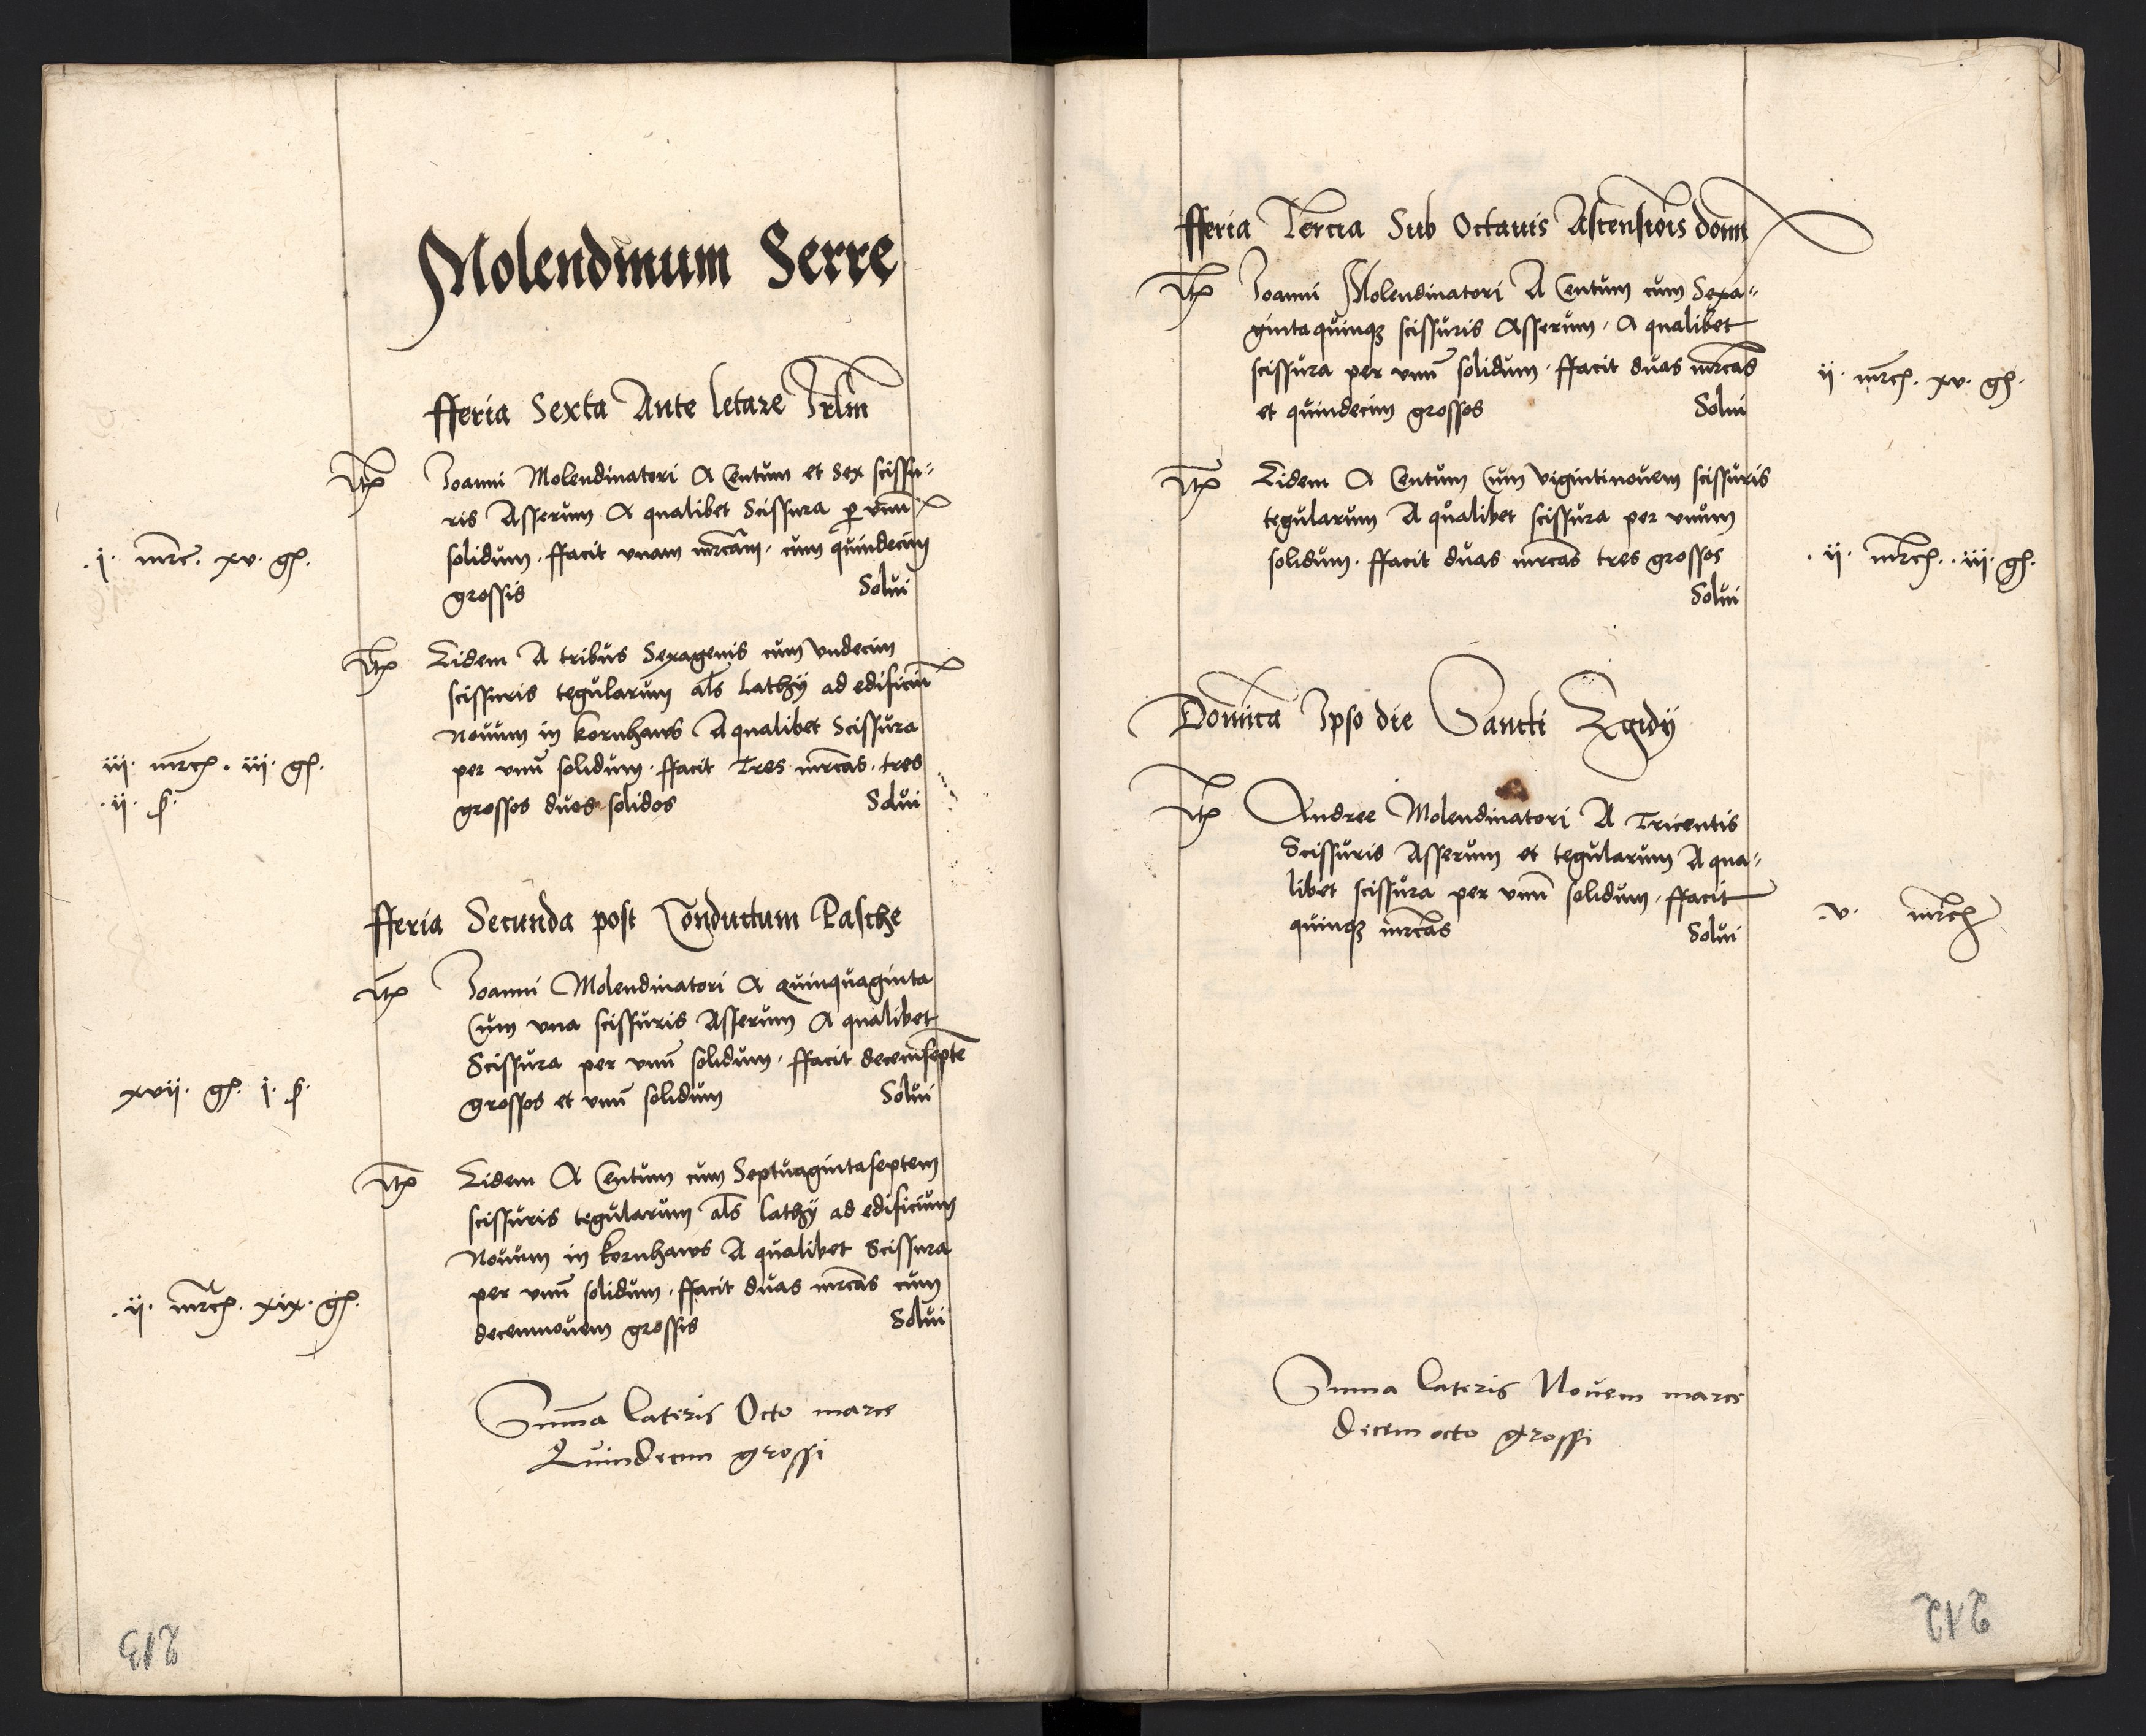 Molendinum Serre
fferia Sexta Ante letare Jrlm
Itm Joanni Molendinatori A Centum et sex scissu-
ris Asserum A qualibet Scissura per vnu
solidum. ffacit vnam mrcam. cum quindecim
grossis Solui
.j. mrc. xv. gſ.
Itm Eidem A tribus Sexagenis cum vndecim
scissuris tegularum als Lathÿ ad edificiu
Nouum in kornhaws A qualibet Scissura
per vnu solidum. ffacit Tres mrcas. tres
grossos duos solidos Solui
iii. mrcſ. iii. gſ.
.ii. ẜ.
fferia Secunda post Conductum Pasche
Itm Joanni Molendinatori A quinquaginta
Cum vna scissuris Asserum A qualibet
Scissura per vnu solidum. ffacit decemsepte
grossos et vnu solidum Solui
xvij. gſ. j. ẜ.
Itm Eidem A Centum cum Septuagintaseptem
scissuris tegularum als lathÿ ad edificium
Nouum in kornhaws A qualibet Scissura
per vnu solidum. ffacit duas mrcas cum
decemnouem grossis Solui
.ij. mrcſ. xix. gſ.
Summa Lateris Octo marce
Quindecim grossi
213
fferia Tercia Sub Octauis Ascensiois domi
Itm Joanni Molendinatori A Centum cum Sexa-
gintaquinqꝫ scissuris Asserum. A qualibet
scissura per vnu solidum. ffacit duas mrcas
et quindecim grossos Solui
ij. mrcſ. xv. gſ.
Itm Eidem A Centum Cum vigintinouem scissuris
tegularum A qualibet scissura per vnum
solidum. ffacit duas mrcas tres grossos
Solui
.ij. mrcſ. .iij. gſ.
Domica Ipso die Sancti Egidÿ
Itm Andree Molendinatori A Tricentis
Scissuris Asserum et tegularum A qua-
libet scissura per vnu solidum. ffacit
quinqꝫ mrcas Solui
.v. mrcſ
Summa Lateris Nouem marce
Decem octo grossi
212